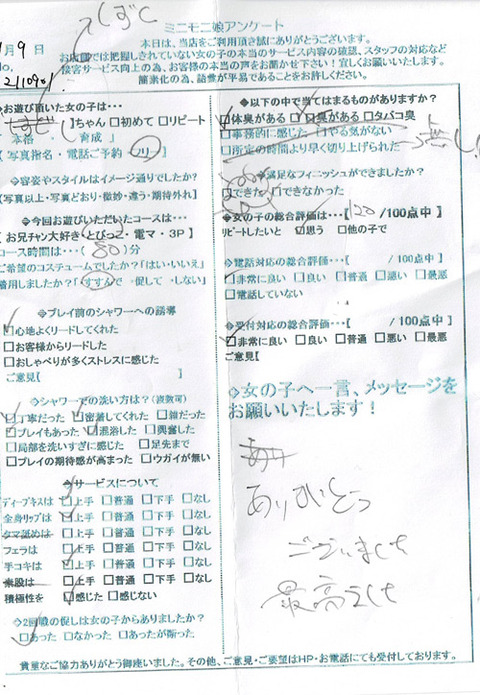 しずく
ミニモニ娘アンケート
月9日
本日は、当店をご利用頂き誠にありがとうございます。
お店側では把握しきれていない女の子の本当のサービス内容の確認、スタッフの対応など
接客サービス向上の為、お客様の本当の声をお聞かせ下さい！宜しくお願いします。
簡素化の為、語彙が平易であることをお許しください。
◆お遊び頂いた女の子は…
ちゃん □初めて □リピート
本格 育成
【 写真指名・電話ご予約 フリー 】
◇容姿やスタイルはイメージ通りでしたか?
【写真以上・写真どおり・微妙・違う・期待外れ】
◆今回お遊びいただいたコースは…
【 お兄チャン大好き・とびっこ・電マ・3P 】
コース時間は…( 80 )分
ご希望のコスチュームでしたか?「はい・いいえ」
着用しましたか?「すすんで ・促して ・しない」
◆プレイ前のシャワーへの誘導
□心地よくリードしてくれた
□お客様からリードした
□おしゃべりが多くストレスに感じた
ご意見【 】
◇シャワーでの洗い方は?(複数可)
□丁寧だった □密着してくれた □雑だった
□プレイもあった □混浴した □興奮した
□局部を洗いすぎに感じた □足先まで
□プレイの期待感が高まった □ウガイが無い
◆サービスについて
ディープキスは □上手 □普通 □下手 □なし
全身リップは □上手 □普通 □下手 □なし
タマ舐めは □上手 □普通 □下手 □なし
フェラは □上手 □普通 □下手 □なし
手コキは □上手 □普通 □下手 □なし
素股は □上手 □普通 □下手 □なし
積極性を □感じた □感じない
◆2回戦の促しは女の子からありましたか?
□あった □なかった □あったが断った
◆以下の中で当てはまるものがありますか?
□体臭がある □口臭がある □タバコ臭
□事務的に感じた □やる気がない
□所定の時間より早く切り上げられた
◇満足なフィニッシュができましたか?
□できた □できなかった
◆女の子の総合評価は…【 120 /100点中 】
リピートしたいと □思う □他の子で
◇電話対応の総合評価…【 /100点中 】
□非常に良い □良い □普通 □悪い □最悪
□電話していない
◇受付対応の総合評価…【 /100点中 】
□非常に良い □良い □普通 □悪い □最悪
ご意見【 】
◇女の子へ一言、メッセージを
お願いいたします！
ありがとう
ございました
最高でした
貴重なご協力ありがとう御座いました。その他、ご意見・ご要望はHP・お電話にても受付しております。